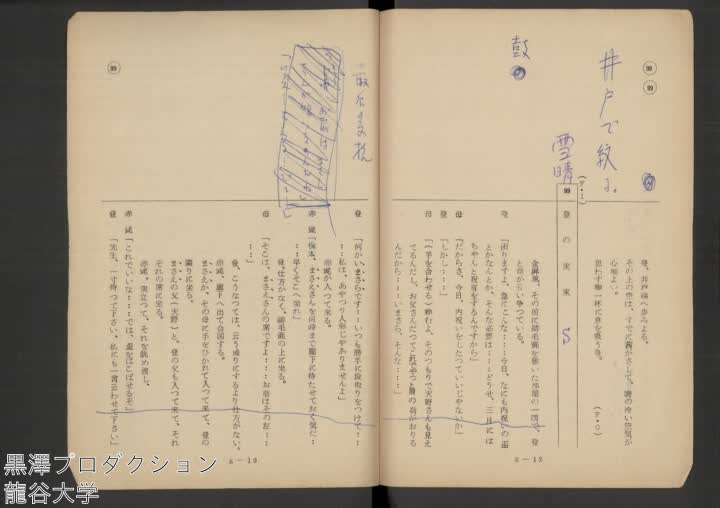 98
99
井戸で紋る。
登、井戸端へ歩みよる。
その上の空は、すでに靄がさして、暁の冷い空気が
心地よい。
思わず胸一杯に息を吸う登。
(F・O)
(F・I)
99 登の実家 S
雪晴
鼓の
金屏風、その前に緋毛氈を敷いた部屋の一隅で、登
と母が云い争つている。
登「困りますよ、急にこんな……今日、なにも内祝いの盃
とかなんとか、そんな必要は……どうせ、三月には
ちやんと祝言をするんですから」
母「だからさ、今日、内祝いをしたつていいじやないか」
登「しかし……」
母「(手を合わせる)頼むよ、そのつもりで天野さんも見え
てるんだし、お父さんだつてこれでやつと肩の荷がおりる
んだから……いまさら、そんな……」
8―12
99
登「何がいまさらです……いつも勝手に段取りをつけて……
…私は、あやつり人形じやありませんよ」
赤髯が入つて来る。
赤髯「保本、まさえさんを何時まで廊下に待たせておく気だ…
…早くそこへ坐れ」
登、仕方がなく、緋毛氈の上に坐る。
母「そこは、まさえさんの席ですよ……お前はその左……
…」
登、こうなつては、云う通りにするより仕方がない。
赤髯、廊下へ出て合図する。
まさえが、その母に手をひかれて入つて来て、登の
隣りに坐る。
まさえの父(天野)と、登の父も入つて来て、それ
ぞれの席に坐る。
赤髯、突立つて、それを眺め渡し、
赤髯「これでいいな……では、盃をはこばせるぞ」
登「先生、一寸待つて下さい、私にも一言云わせて下さい」
8―13
黒澤プロダクション
龍谷大学